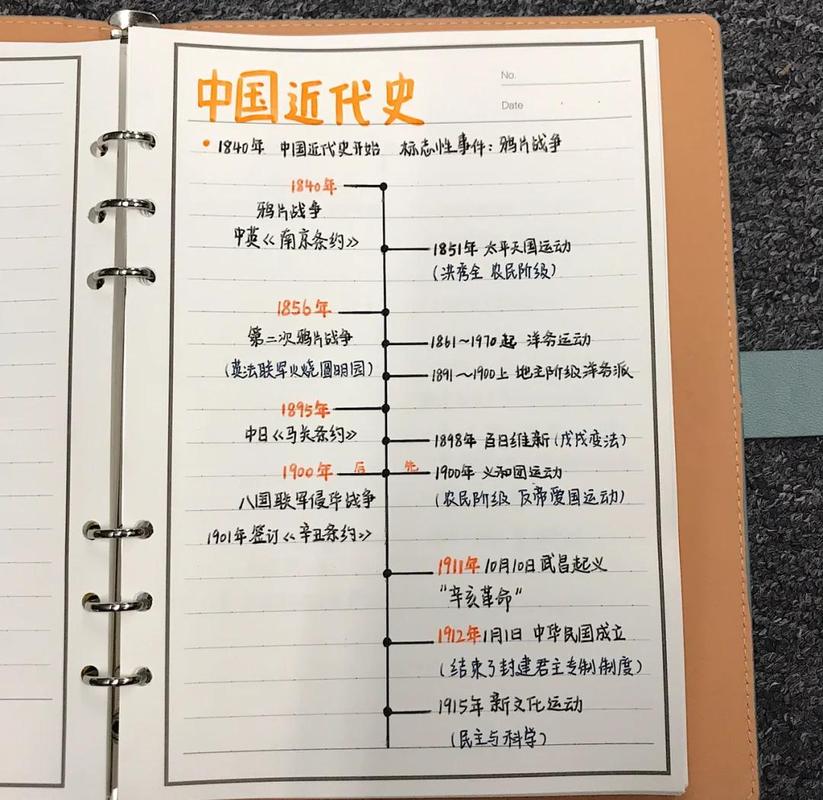 中国近代史
No.
Date
1840年 中国近代史开始 标志性事件：鸦片战争
1840年
鸦片战争
中英《南京条约》
1851年 太平天国运动
（洪秀全 农民阶级）
1856年
第二次鸦片战争
（英法联军火烧圆明园）
1861～1970起 洋务运动
1891～1900上 地主阶级洋务派
1895年
中日《马关条约》
1898年 百日维新（戊戌变法）
1900年 后 先 1900年 义和团运动
八国联军侵华战争
（农民阶级 反帝爱国运动）
1901年签订《辛丑条约》
1911年10月10日武昌起义
"辛亥革命"
1912年1月1日 中华民国成立
（结束了封建君主专制制度）
1915年新文化运动
（民主与科学）